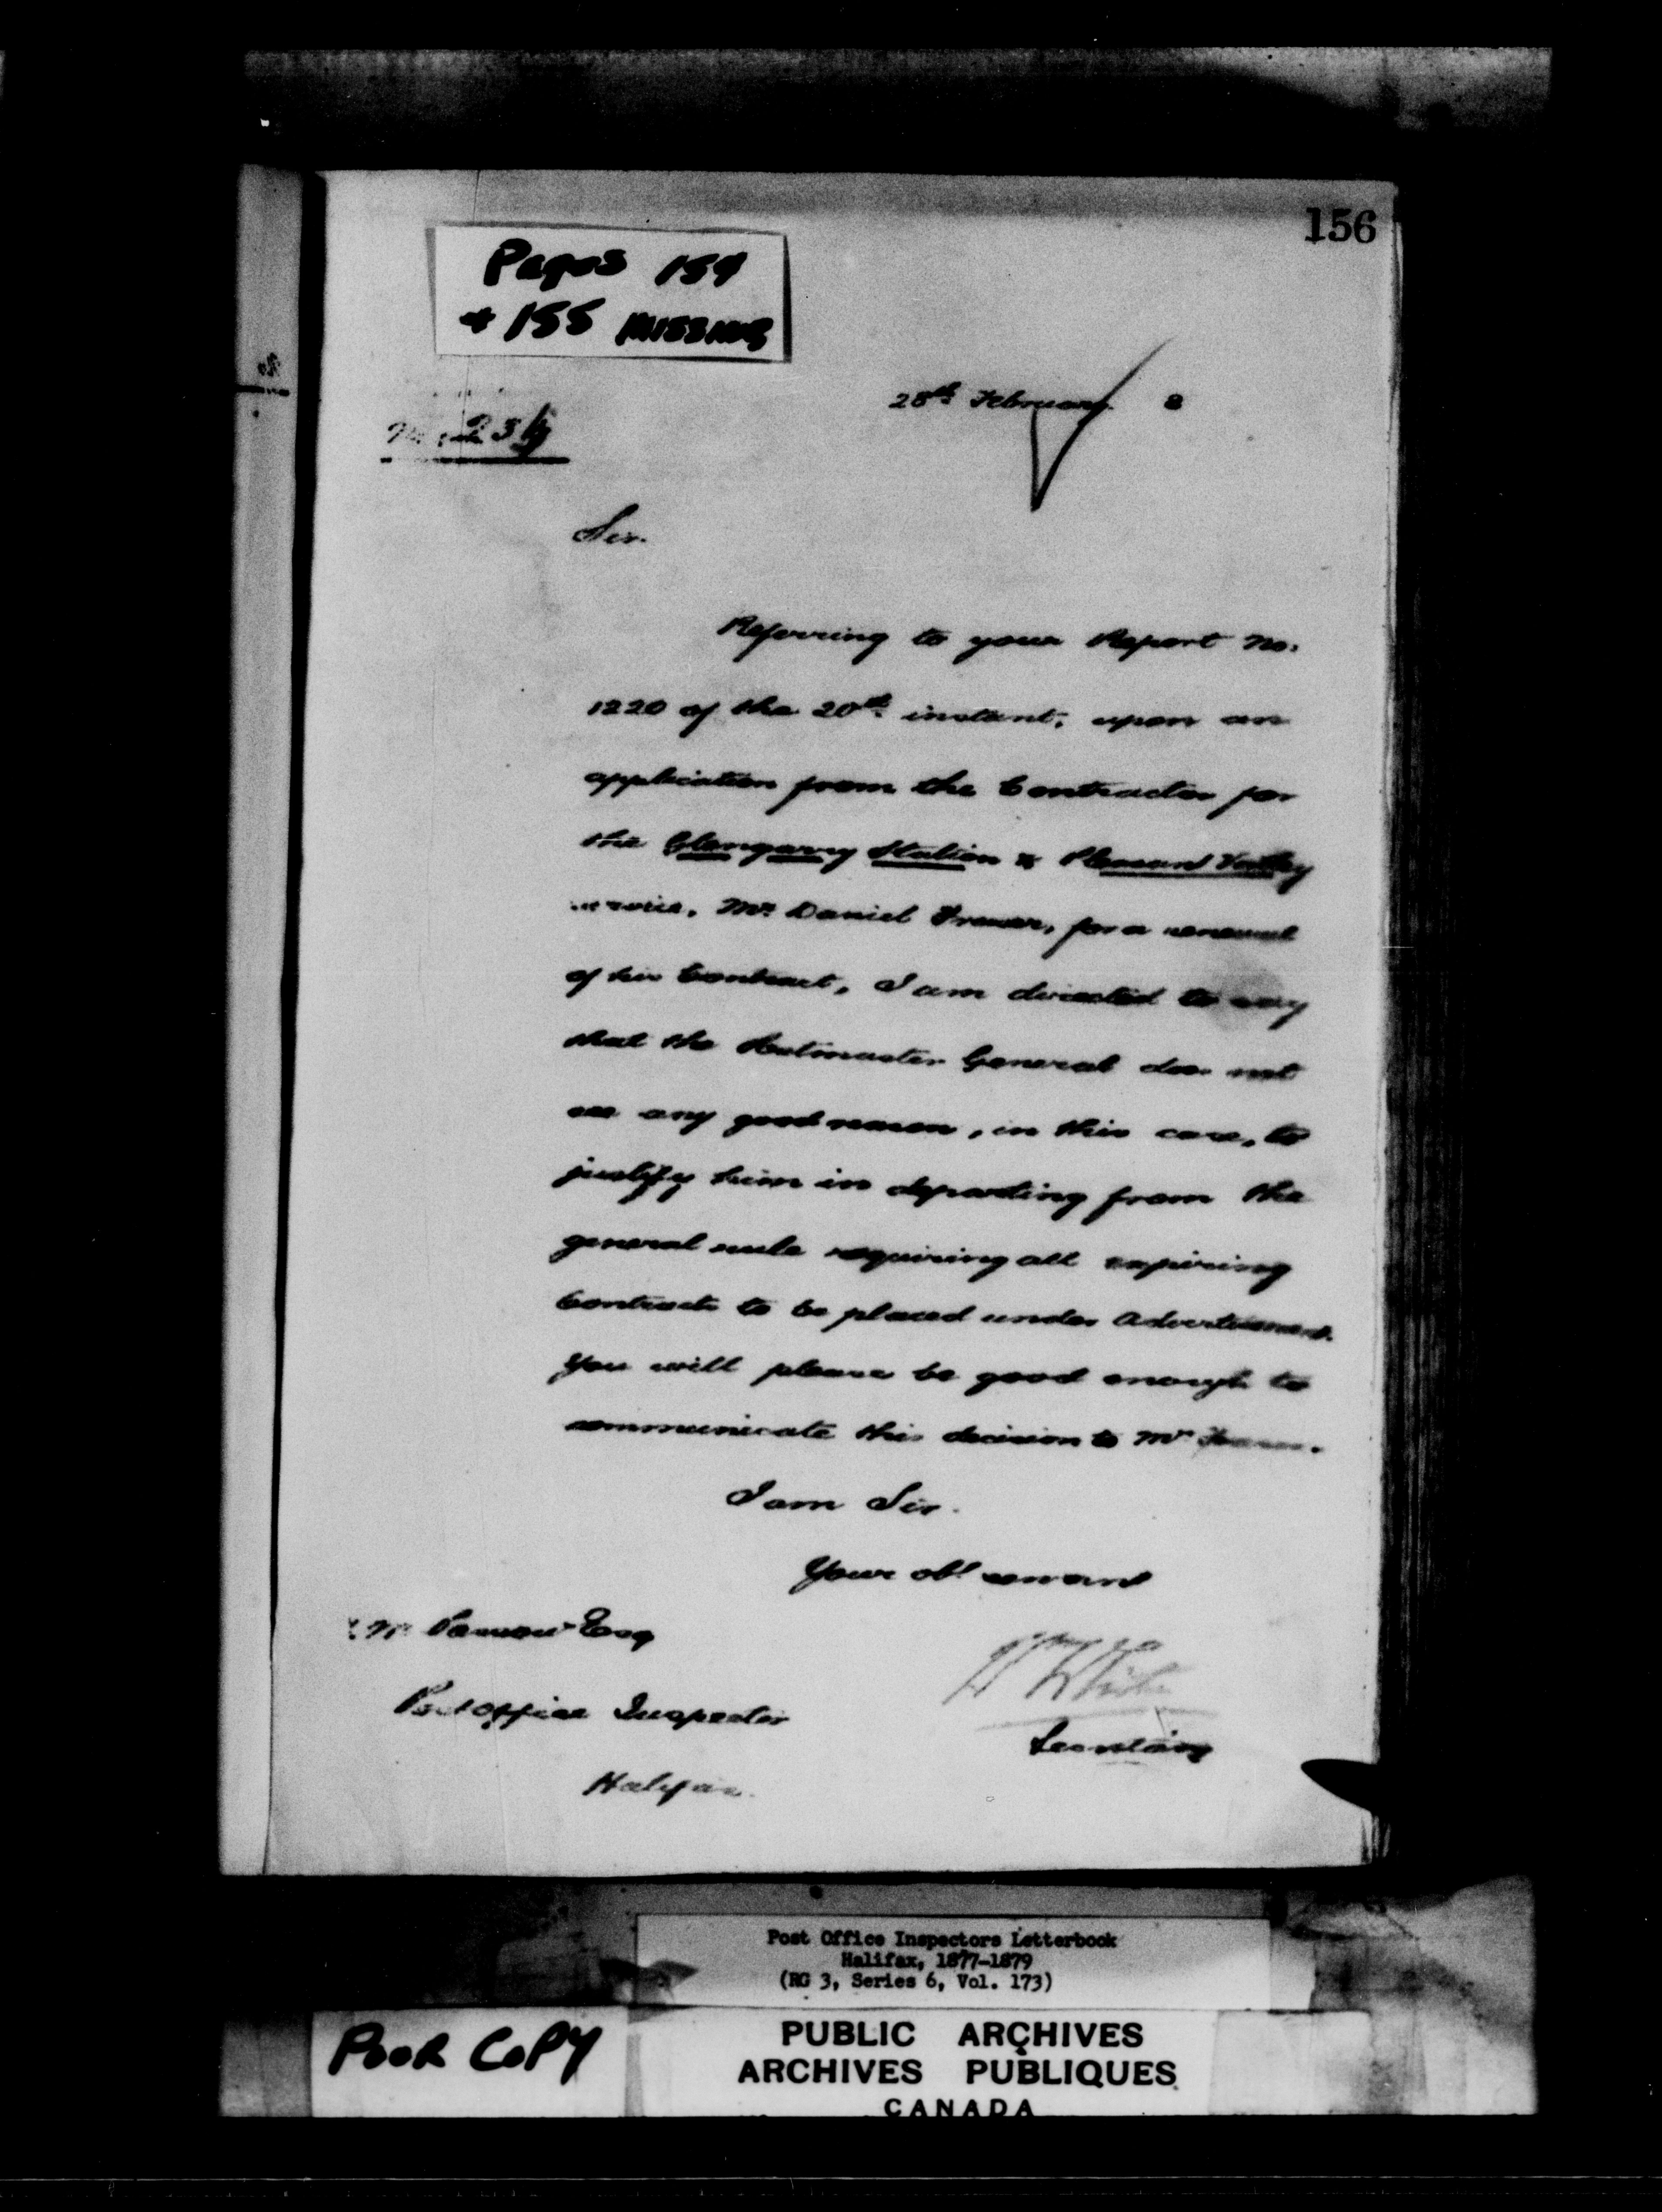 156
Pages 154
+ 155 MISSING
28th February 8
Sir.
Referring to your Report No.
1220 of the 20th instant, upon an
application from the Contractor for
the Glengarry Station & Pleasant Valley
service, Mr Daniel Fraser, for a renewal
of his Contract, I am directed to say
that the Postmaster General does not
see any good reason, in this case, to
justify him in departing from the
general rule requiring all expiring
Contracts to be placed under Advertisement.
You will please be good enough to
communicate this decision to Mr Fraser.
I am Sir.
Your obt servant
Esq
Post Office Inspector
White
Secretary
Halifax.
Post Office Inspectors Letterbook
Halifax, 1877-1879
(RG 3, Series 6, Vol. 173)
POOR COPY
PUBLIC ARCHIVES
ARCHIVES PUBLIQUES
CANADA